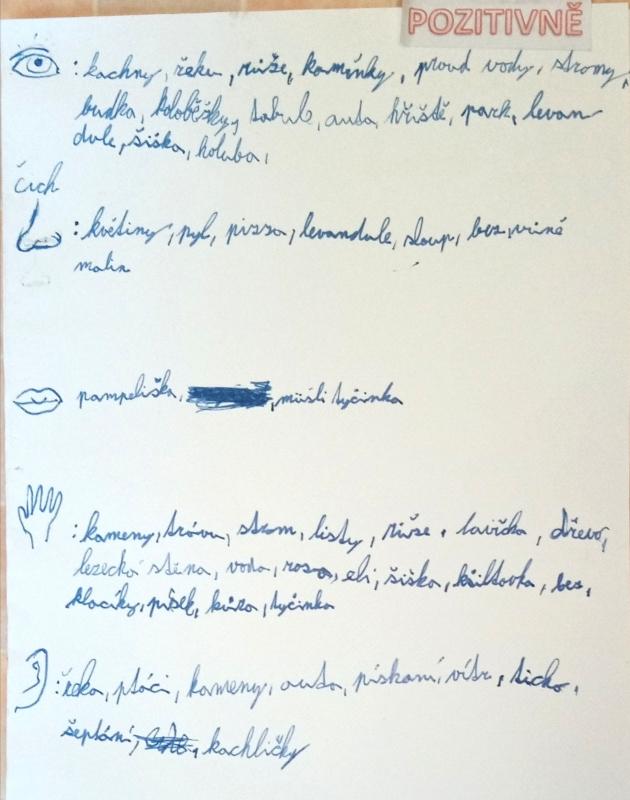 POZITIVNĚ
: kachny, řeku, růže, kamínky, proud vody, stromy,
budka, koloběžky, tabule, auta, hřiště, park, levan
dule, šiška, holuba,
čich
: květiny, pyl, pizza, levandule, sloup, bez, vůně
malin
pampeliška, , müsli tyčinka
: kameny, tráva, strom, listy, růže, lavička, dřevo,
lezecká stěna, voda, rosa, šiška, kšiltovka, bez,
klacíky, písek, kůra, tyčinka
: řeka, ptáci, kameny, auta, pískání, vítr, ticho,
šeptání, , kachličky